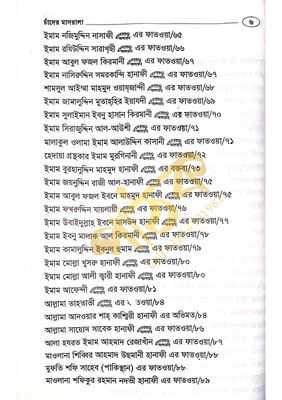 চাঁদের মাসয়ালা ৬
ইমাম নজিমুদ্দিন নাসাফী এর ফাতওয়া/৬৫
ইমাম রযিউদ্দিন সারাখ্ছী এর ফাতওয়া/৬৬
ইমাম আবুল ফজল কিরমানী এর ফাতওয়া/৬৭
ইমাম নাসিরুদ্দিন সমরকান্দি হানাফী এর ফাতওয়া/৬৭
শামসুল আইম্মা মাহমুদ ওয়াযজান্দী এর ফাতওয়া/৬৮
ইমাম জামালুদ্দিন মুতাহ্হির ইয়াযদী এর ফাতওয়া/৬৯
ইমাম সুলাইমান ইবনু হাসান কিরমানী এর ফাতওয়া/৭০
ইমাম সিরাজুদ্দিন আল-আউশী এর ফাতওয়া/৭১
মালাকুল ওলামা ইমাম আলাউদ্দিন কাসানী এর ফাতওয়া/৭১
হেদায়া গ্রন্থকার ইমাম মুরগিনানী এর ফাতওয়া/৭২
ইমাম বুরহানুদ্দিন মাহমুদ হানাফী এর বক্তব্য/৭৩
ইমাম জয়নুদ্দিন রাজী আল-হানাফী এর ফাতওয়া/৭৫
ইমাম আবুল ফজল ইবনে মাহমুদ হানাফী এর ফাতওয়া/৭৫
ইমাম ফখরুদ্দিন যায়লায়ী এর ফাতওয়া/৭৬
ইমাম উবাইদুল্লাহ ইবনে মাসউদ হানাফী এর ফাতওয়া/৭৭
ইমাম ইবনু মালাক আল কিরমানী এর ফাতওয়া/৭৮
ইমাম কামালুদ্দিন ইবনুল হুমাম এর ফাতওয়া/৭৯
ইমাম মোল্লা খুসরু হানাফী এর ফাতওয়া/৮০
ইমাম মোল্লা আলী ক্বারী হানাফী এর ফাতওয়া/৮০
ইমাম আফেন্দী এর ফাতওয়া/৮১
আল্লামা আহতাভী এর ফাতওয়া/৮৪
আল্লামা আনওয়ার শাহ্ কাশ্মিরী হানাফী এর অভিমত/৮৪
আল্লামা সায়্যেদ সাবেক হানাফী এর ফাতওয়া/৮৬
আলা হযরত ইমাম আহমাদ রেজাখাঁন এর ফাতওয়া/৮৭
মাওলানা শিব্বির আহমাদ উছমানী হানাফী এর ফাতওয়া/৮৮
মুফতি শফি সাহেব (পাকিস্থান) এর ফাতওয়া/৮৮
মাওলানা শফিকুর রহমান নদভী হানাফী এর ফাতওয়া/৮৯